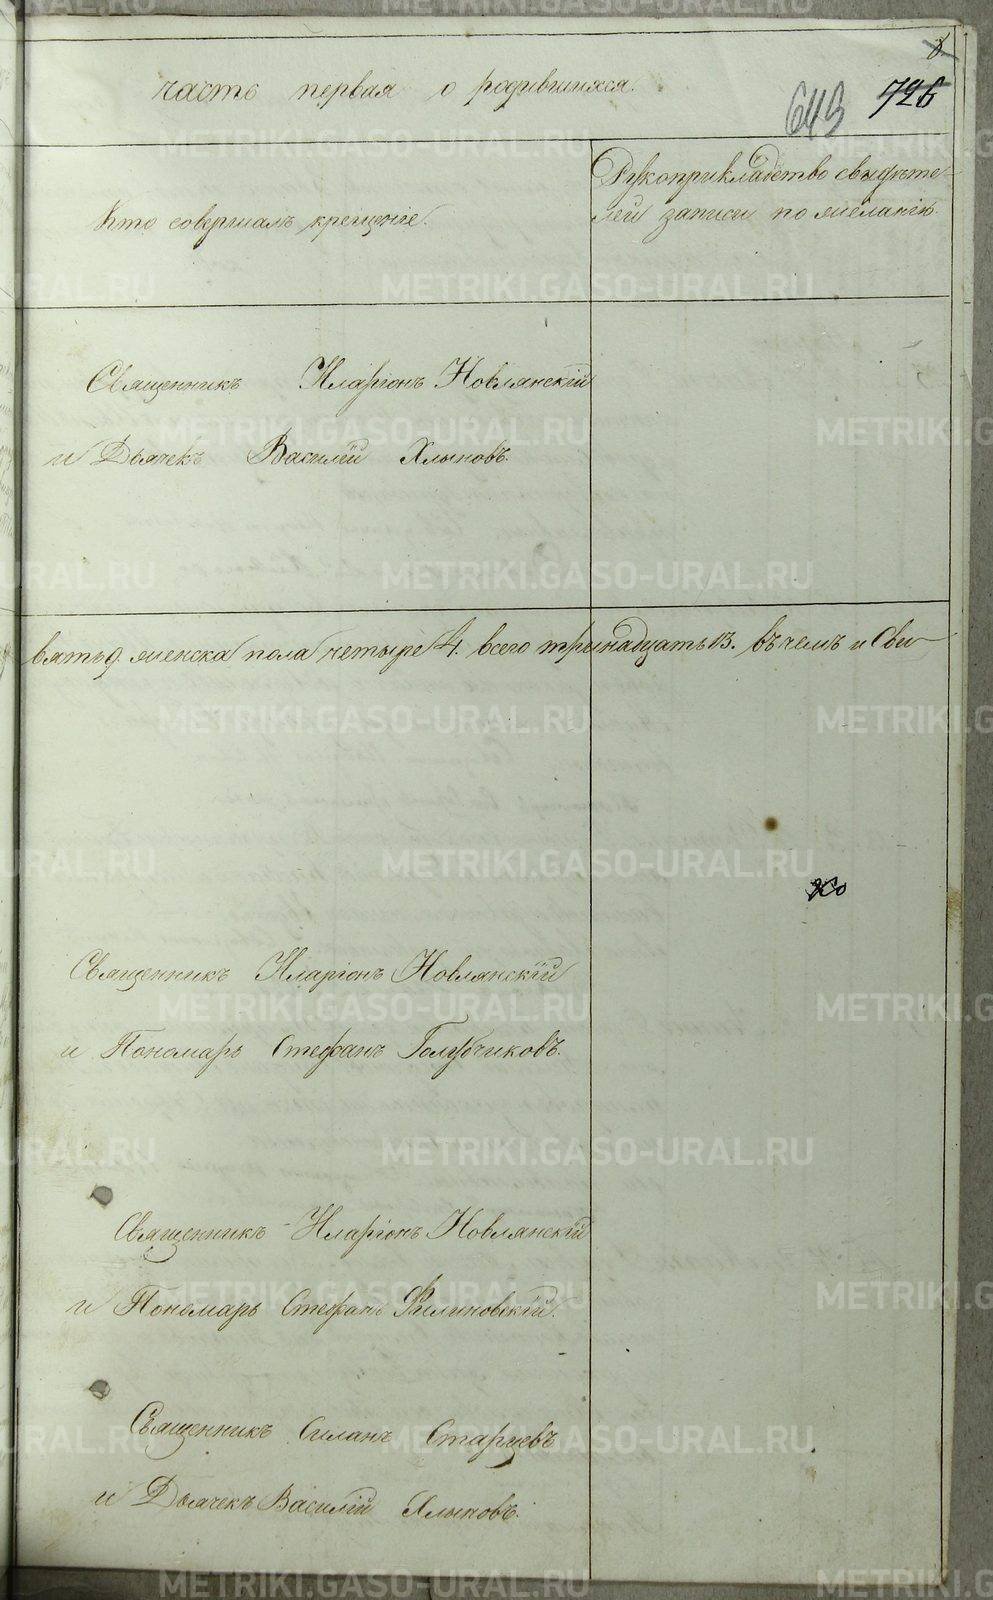 8
часть первая о родившихся.
643 726
Кто совершалъ крещеніе.
Рукоприкладство свидѣте-
лей записи по желанію.
Священникъ Иларіонъ Новлянскій
и Дьячекъ Василій Хлыновъ.
вять 9. женска пола четыре 4. всего тринадцать 13. въ чемъ и Сви-
Священникъ Иларіонъ Новлянскій
и Пономарь Стефанъ Голубчиковъ.
Священникъ Иларіонъ Новлянскій
и Пономарь Стефанъ Филиновскій.
Священникъ Силанъ Старцевъ
и Дьячекъ Василій Хлыновъ.
METRIKI.GASO-URAL.RU